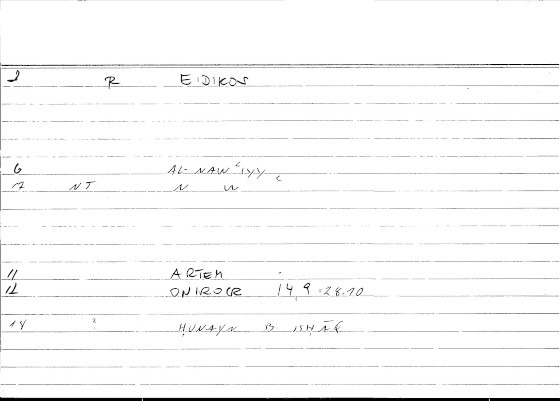 1 R EIDIKOS
6 AL-NAWʿIYY
7 NT N W
11 ARTEM
12 ONIROCR 14,9-28.10
14 ? ḤUNAYN B ISḤĀQ